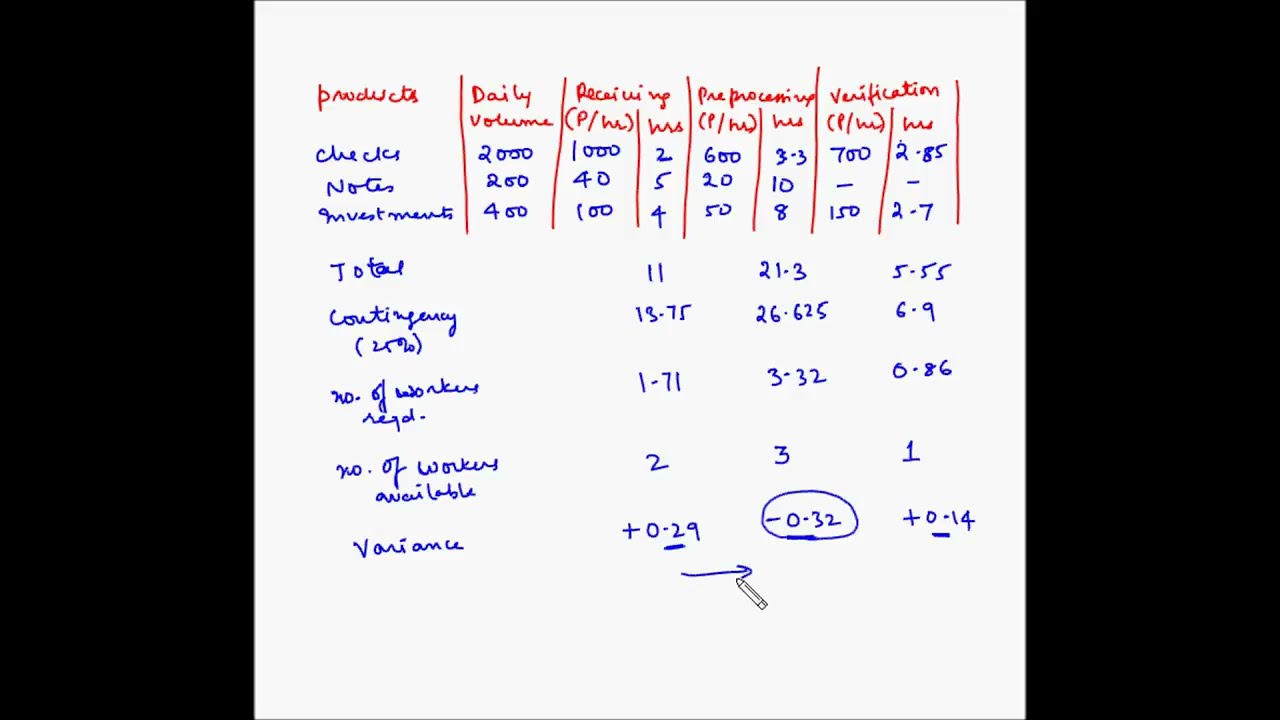 products Daily Receiving Preprocessing Verification
volume (P/hr) hrs (P/hr) hrs (P/hr) hrs
Checks 2000 1000 2 600 3.3 700 2.85
Notes 200 40 5 20 10 — —
Investments 400 100 4 50 8 150 2.7
Total 11 21.3 5.55
Contingency 13.75 26.625 6.9
(25%)
no. of workers 1.71 3.32 0.86
reqd.
no. of workers 2 3 1
available
Variance +0.29 -0.32 +0.14